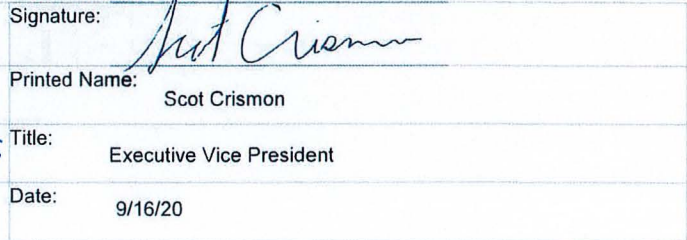 Signature: Scot Crismon
Printed Name:
Scot Crismon
Title:
Executive Vice President
Date:
9/16/20